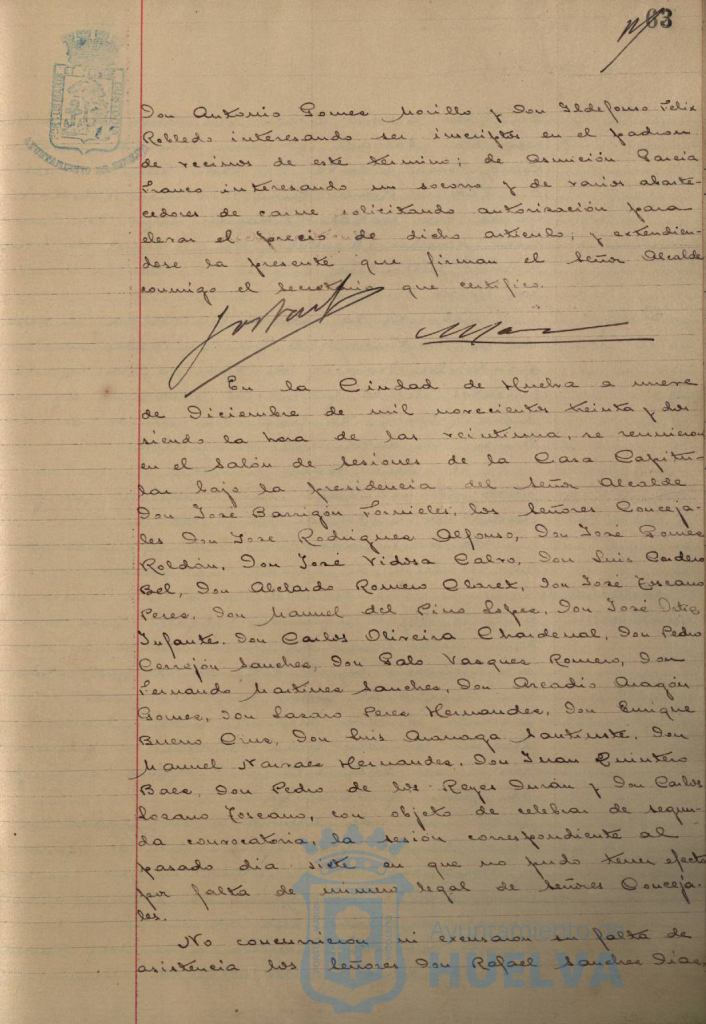 63
Don Antonio Gomez Morillo y Don Ildefonso Felix
Robledo interesando ser inscriptos en el padron
de vecinos de este termino; de Asunción Garcia
Franco interesando un socorro y de varios abaste-
cedores de carne solicitando autorización para
elevar el precio de dicho artículo, y extendien-
dose la presente que firman el Señor Alcalde
conmigo el Secretario que certifico.
En la Ciudad de Huelva a nueve
de Diciembre de mil novecientos treinta y dos
siendo la hora de las veintiuna, se reunieron
en el Salón de Sesiones de la Casa Capitu-
lar bajo la presidencia del Señor Alcalde
Don José Barrigón Fornieles, los Señores Conceja-
les Don Jose Rodriguez Alfonso, Don José Gomez
Roldán, Don José Vidosa Calvo, Don Luis Cordero
Bel, Don Abelardo Romero Claret, Don José Toscano
Perez, Don Manuel del Pino Lopez, Don José Ortiz
Infante, Don Carlos Oliveira Chardenal, Don Pedro
Cerrejón Sanchez, Don Galo Vazquez Romero, Don
Fernando Martinez Sanchez, Don Arcadio Aragón
Gomez, Don Lazaro Perez Hernandez, Don Enrique
Bueno Cruz, Don Luis Aranaga Santiuste, Don
Manuel Narvaez Hernandez, Don Juan Quintero
Baez, Don Pedro de los Reyes Durán y Don Carlos
Lozano Toscano, con objeto de celebrar de segun-
da convocatoria, la sesión correspondiente al
pasado dia siete en que no pudo tener efecto
por falta de número legal de Señores Conceja-
les.
No concurrieron ni excusaron su falta de
asistencia los Señores Don Rafael Sanchez Diaz,
Ayuntamiento de
HUELVA